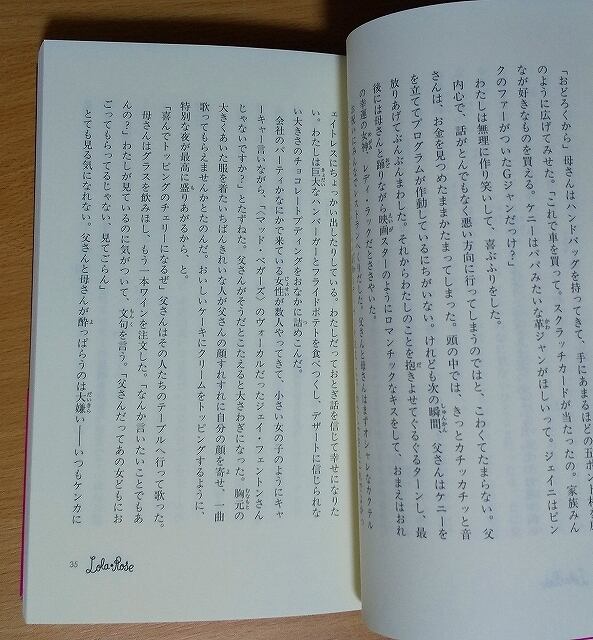 「おどろくから」母さんはハンドバッグを持ってきて、手にあまるほどの五ポンド札を
のように広げてみせた。「これで車を買って。スクラッチカードが当たったの。家族みん
なが好きなものを買える。ケニーはパパみたいな革ジャンがほしいって。ジェイニはピン
クのファーがついたGジャンだっけ？」
わたしは無理に作り笑いして、喜ぶふりをした。
内心で、話がとんでもなく悪い方向に行ってしまうのではと、こわくてたまらない。父
さんは、お金を見つめたままかたまってしまった。頭の中では、きっとカチッカチッと音
を立ててプログラムが作動しているにちがいない。けれども次の瞬間、父さんはケニーを
放りあげてぶんぶんまわした。それからわたしのことを抱きよせてぐるぐるターンし、最
後には母さんと踊りながら映画スターのようにロマンチックなキスをして、おまえはおれ
の幸運の女神、レディ・ラックだとささやいた。
父さんと母さんはまずオシャレなカクテル
ェイトレスにちょっかい出したりしている。わたしだっておとぎ話を信じて幸せになりた
い。わたしは巨大なハンバーガーとフライドポテトを食べつくし、デザートに信じられな
い大きさのチョコレートプディングをおなかに詰めこんだ。
会社のパーティかなにかで来ている女性が数人やってきて、小さい女の子のようにキャ
ーキャー言いながら、「〈ヘッド・ベガーズ〉のヴォーカルだったジェイ・フェントンさん
じゃないですか？」とたずねた。父さんがそうだとこたえると大さわぎになった。胸元の
大きくあいた服を着たいちばんきれいな人が父さんの顔すれすれに自分の顔を寄せ、一曲
歌ってもらえませんかとたのんだ。おいしいケーキにクリームをトッピングするように、
特別な夜が最高に盛りあがるから、と。
「喜んでトッピングのチェリーになるぜ」父さんはその人たちのテーブルへ行って歌った。
母さんはグラスを飲みほし、もう一本ワインを注文した。「なんか言いたいことでもあ
んの？」わたしが見ているのに気がついて、文句を言う。「父さんだってあの女どもにお
ごってもらってるじゃない。見てごらん」
とても見る気になれない。父さんと母さんが酔っぱらうのは大嫌い――いつもケンカに
35
Lola Rose